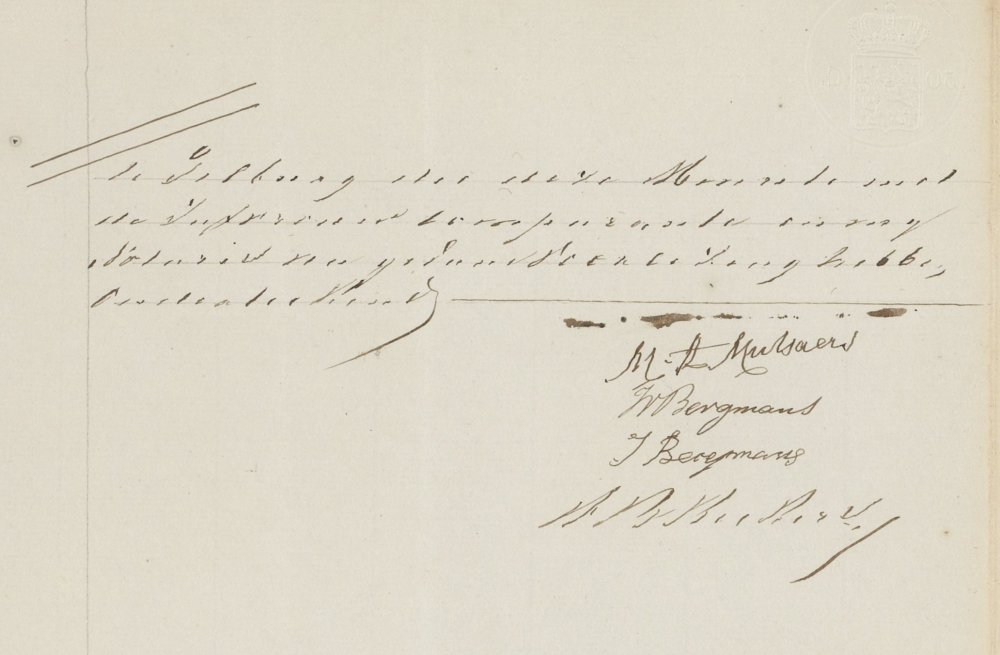 te Tilburg die deze Minute met
de Jufvrouw comparante en my
Notaris na gedane Voorlezing hebben
Onderteekend
M. A Mutsaers
W Bergmans
J Bergmans